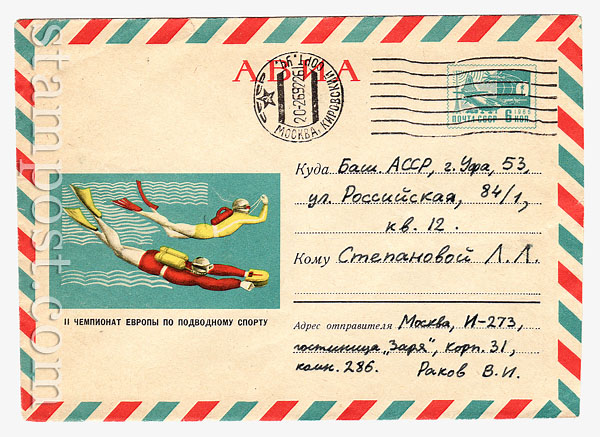 АВИА
МОСКВА, КИРОВСКИЙ ПОЧТ.
ПОЧТА СССР 6 КОП.
Куда Баш. АССР, г. Уфа, 53,
ул. Российская, 84/1,
кв. 12.
Кому Степановой Л. Л.
II ЧЕМПИОНАТ ЕВРОПЫ ПО ПОДВОДНОМУ СПОРТУ
Адрес отправителя Москва, И-273,
гостиница „Заря", корп. 31,
комн. 286. Раков В. И.
stampost.com
stampost.com